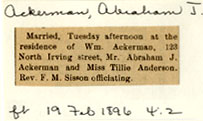 Ackerman, Abraham J.
Married, Tuesday afternoon at the
residence of Wm. Ackerman, 123
North Irving street, Mr. Abraham J.
Ackerman and Miss Tillie Anderson.
Rev. F. M. Sisson officiating.
19 Feb 1896 4.2